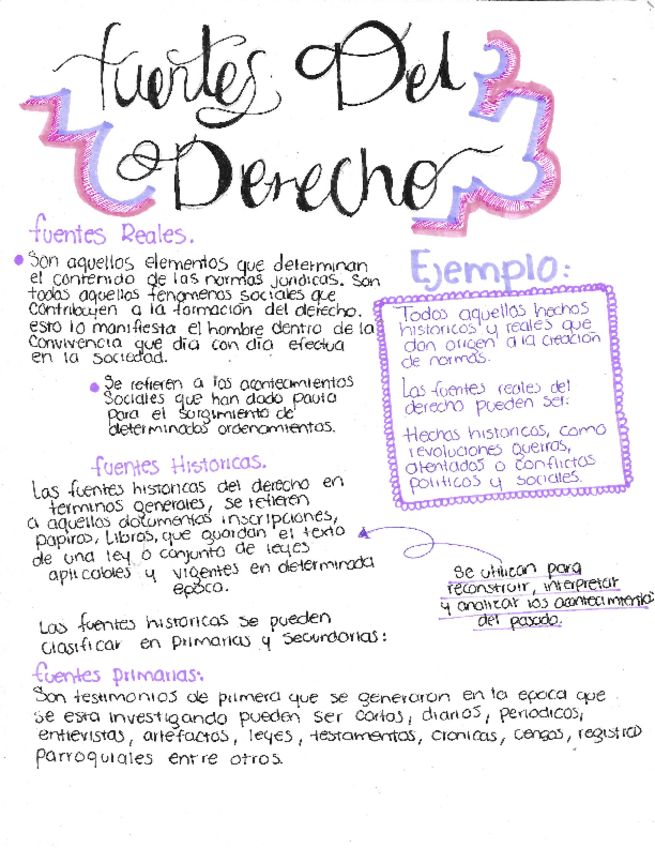 fuentes Del
Derecho
fuentes Reales.
Son aquellos elementos que determinan
el contenido de las normas juridicas. Son
todos aquellos fenomenos sociales que
contribuyen a la formación del derecho.
esto lo manifiesta el hombre dentro de la
convivencia que dia con dia efectua
en la sociedad.
Se refieren a los acontecimientos
Sociales que han dado pauta
para el surgimiento de
determinados ordenamientos.
Ejemplo:
Todos aquellos hechos
historicos y reales que
dan origen a la creación
de normas.
Las fuentes reales del
derecho pueden ser:
Hechos historicos, como
revoluciones guerras,
atentados o conflictos
politicos y sociales.
fuentes Historicas.
Las fuentes historicas del derecho en
terminos generales, se refieren
a aquellos documentos inscripciones,
papiros, libros, que guardan el texto
de una ley o conjunto de leyes
aplicables y vigentes en determinada
epoca.
Se utilizan para
reconstruir, interpretar
y analizar los acontecimientos
del pasado.
Las fuentes historicas se pueden
clasificar en primarias y secundarias:
fuentes primarias:
Son testimonios de primera que se generaron en la epoca que
se esta investigando pueden ser cartas, diarios, periodicos,
entrevistas, artefactos, leyes, testamentos, cronicas, censos, registro
parroquiales entre otros.